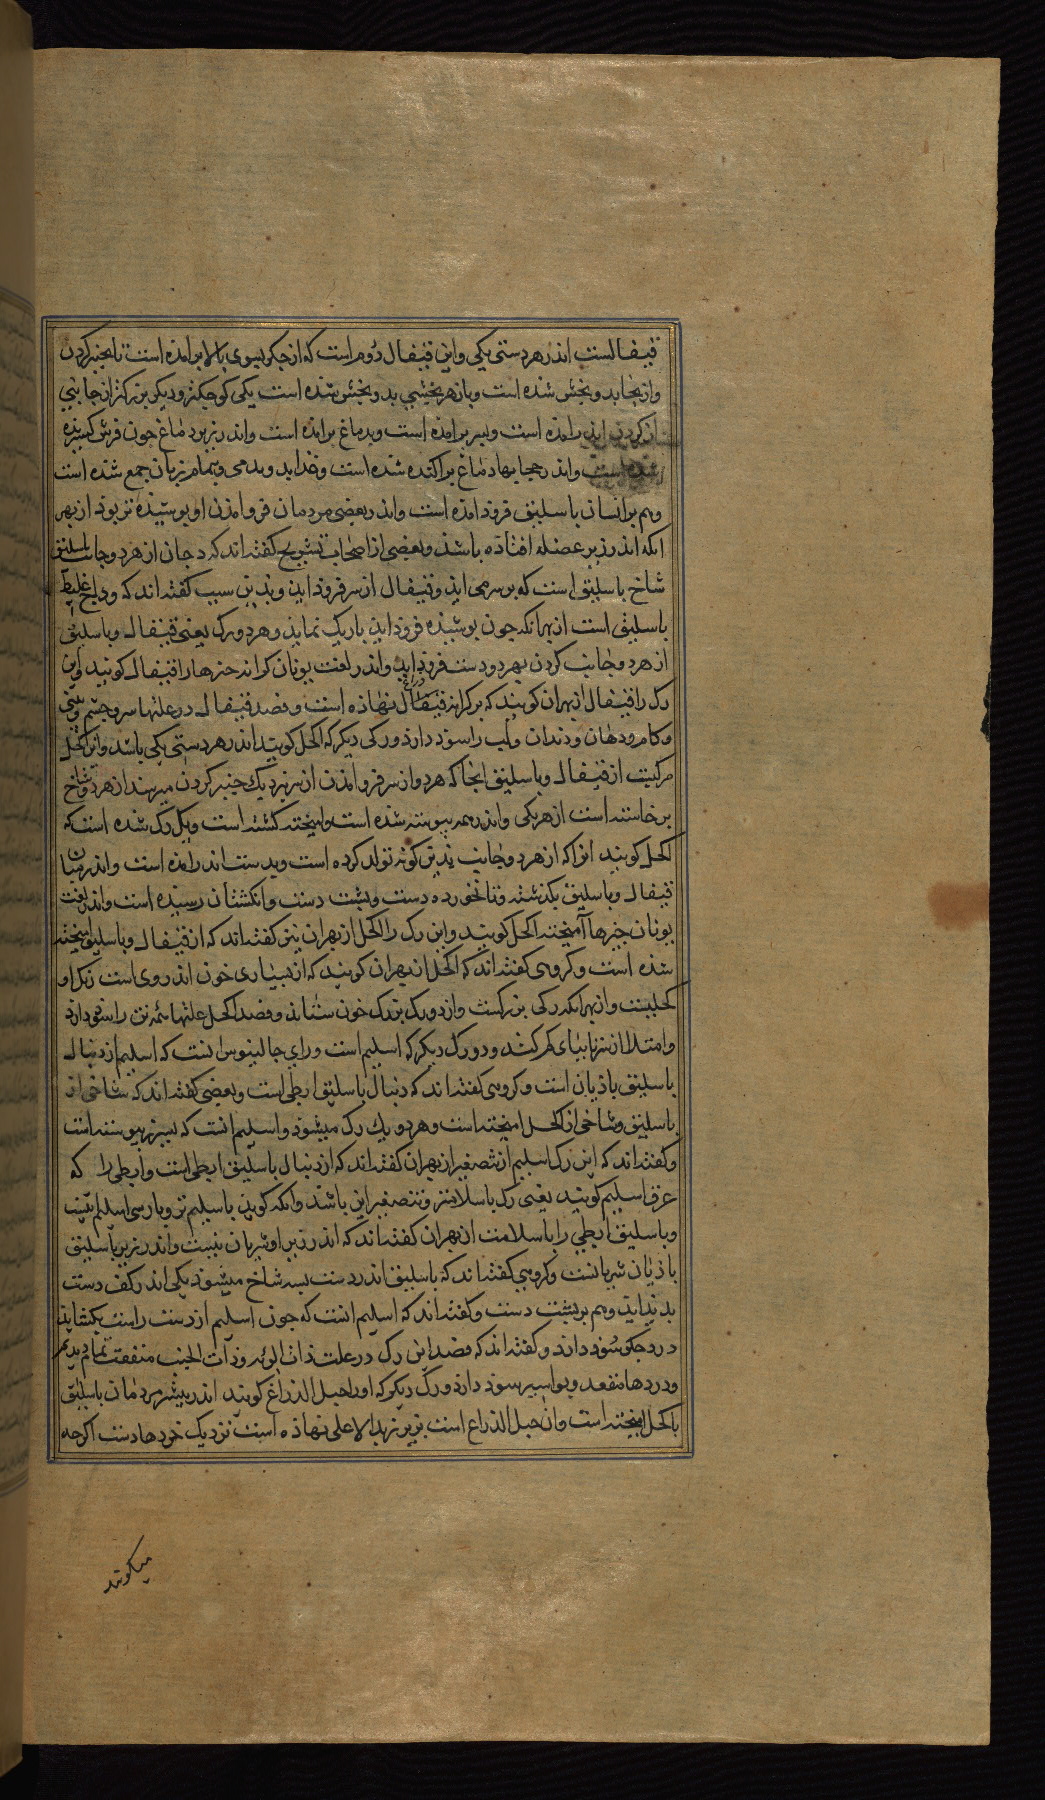 قیفالست اندر هر دستی یکی و این قیفال دوم است که از جکر بسوی بالا برامده است تا بجنبر کردن
و از بنجا بدو بخش شده است و باز هر بخشی بدو بخش شده است یکی کوجکتر و دیکر بزرکتر از جانبی
از کردن اندر امده است و بسر برامده است و بدماغ برامده است و اندر زیر دماغ جون فرش کسترده
شده است و اندر دماغ براکنده شده است و غدا بدو بدمی و تمام تر بان جمع شده است
و هم بر انسان باسلیق فروذ امذه است و اندر بعضی مردمان فرو امذن او بوشیذه تر بوذ از بهر
انکه اندر زیر عضله افتاذه باشذ و بعضی از اصحاب تشریح کفته اند که دجان از هر دو جانب باسلیق
شاخ باسلیق است که بر سر می ایذ و قیفال از سر فروذ ایذ و بذین سبب کفته اند که وداج غلیظ
باسلیق است از بهر انکه جون بوشیذه فروذ ایذ باریک نمایذ و هر دو رک یعنی قیفال و باسلیق
از هر دو جانب کردن بهر دو دست فروذ ایذ و اندر لغت یونان کرانه جیزها را قیفال کویند و این
رک را قیفال از بهر ان کویند که بر کرانه قیفال نهاذه است و فصد قیفال در علتها سر و جشم و بینی
و کام و دهان و دندان و لب را سوذ دارذ و رکی دیکر که اکحل کویند اندر هر دستی یکی باشد و این اکحل
مرکبست از قیفال و باسلیق انجا که هر دو از سر فرو امذن از نزدیک جنبر کردن میرسند از هر دو شاخ
برخاسته است از هر یکی و اندر هم پیوسته شده است و امیخته کشته است و یک رک شده است که
اکحل کویند انرا که از هر دو جانب بذین کونه تولد کرده است و بدست اندر امذه است و اندر میان
قیفال و باسلیق بکذشته و تا بخورده دست و پشت دست و انکشتان رسیذه است و اندر لغت
یونان جیزها آمیخته اکحل کویند و این رک را اکحل از بهر ان نیز کفته اند که از قیفال و باسلیق امیخته
شده است و کروهی کفته اند که اکحل از بهر ان کویند که از بسیاری خون اندر وی است رنک او
کحلیست و از بهر انکه رکی بزرکست و از دو رک بزرک خون ستاند و فصد اکحل علتها همه تن را سوذ دارد
و امتلا از تنها بتمامی کم کند و دو رک دیکر که اسلیم است و رای جالینوس انست که اسیلم از دنبال
باسلیق باذیان است و کروهی کفته اند که دنبال باسلیق ابطی است و بعضی کفته اند که شاخی از
باسلیق و شاخی از اکحل امیخته است و هر دو یک رک میشوذ و اسیلم انست که بسبرز پیوسته است
و کفته اند که این رک اسیلم از تصغیر از بهر ان کفته اند که از دنبال باسلیق ابطی است و ابطی را که
عرق اسیلم کویند یعنی رک باسلامتر و تصغیر این باشذ و انکه کویذ باسیلم تر و بارسی اسیلم اینست
و باسلیق ابطی را باسلامت از بهر ان کفته اند که اندر زیر او شریان نیست و اندر زیر باسلیق
باذیان شریانست و کروهی کفته اند که باسلیق اندر دست بسه شاخ میشوذ یکی اندر کف دست
بدید ایذ و هم بر بشت دست و کفته اند که اسیلم انست که جون اسیلم از دست راست بکشایذ
درد جکر سوذ دارد و کفته اند که فصد این رک در علت ذات الریه و ذات الجنب منفعت تمام دیدیم
و دردها مقعد و بواسیر سوذ دارذ و رک دیکر که او را حبل الذراع کویند اندر بیشتر مردمان باسلیق
باکحل امیخته است و ان حبل الذراع است بزیر زند الاعلی نهاذه است نزدیک خردها دست اکرجه
میکویند